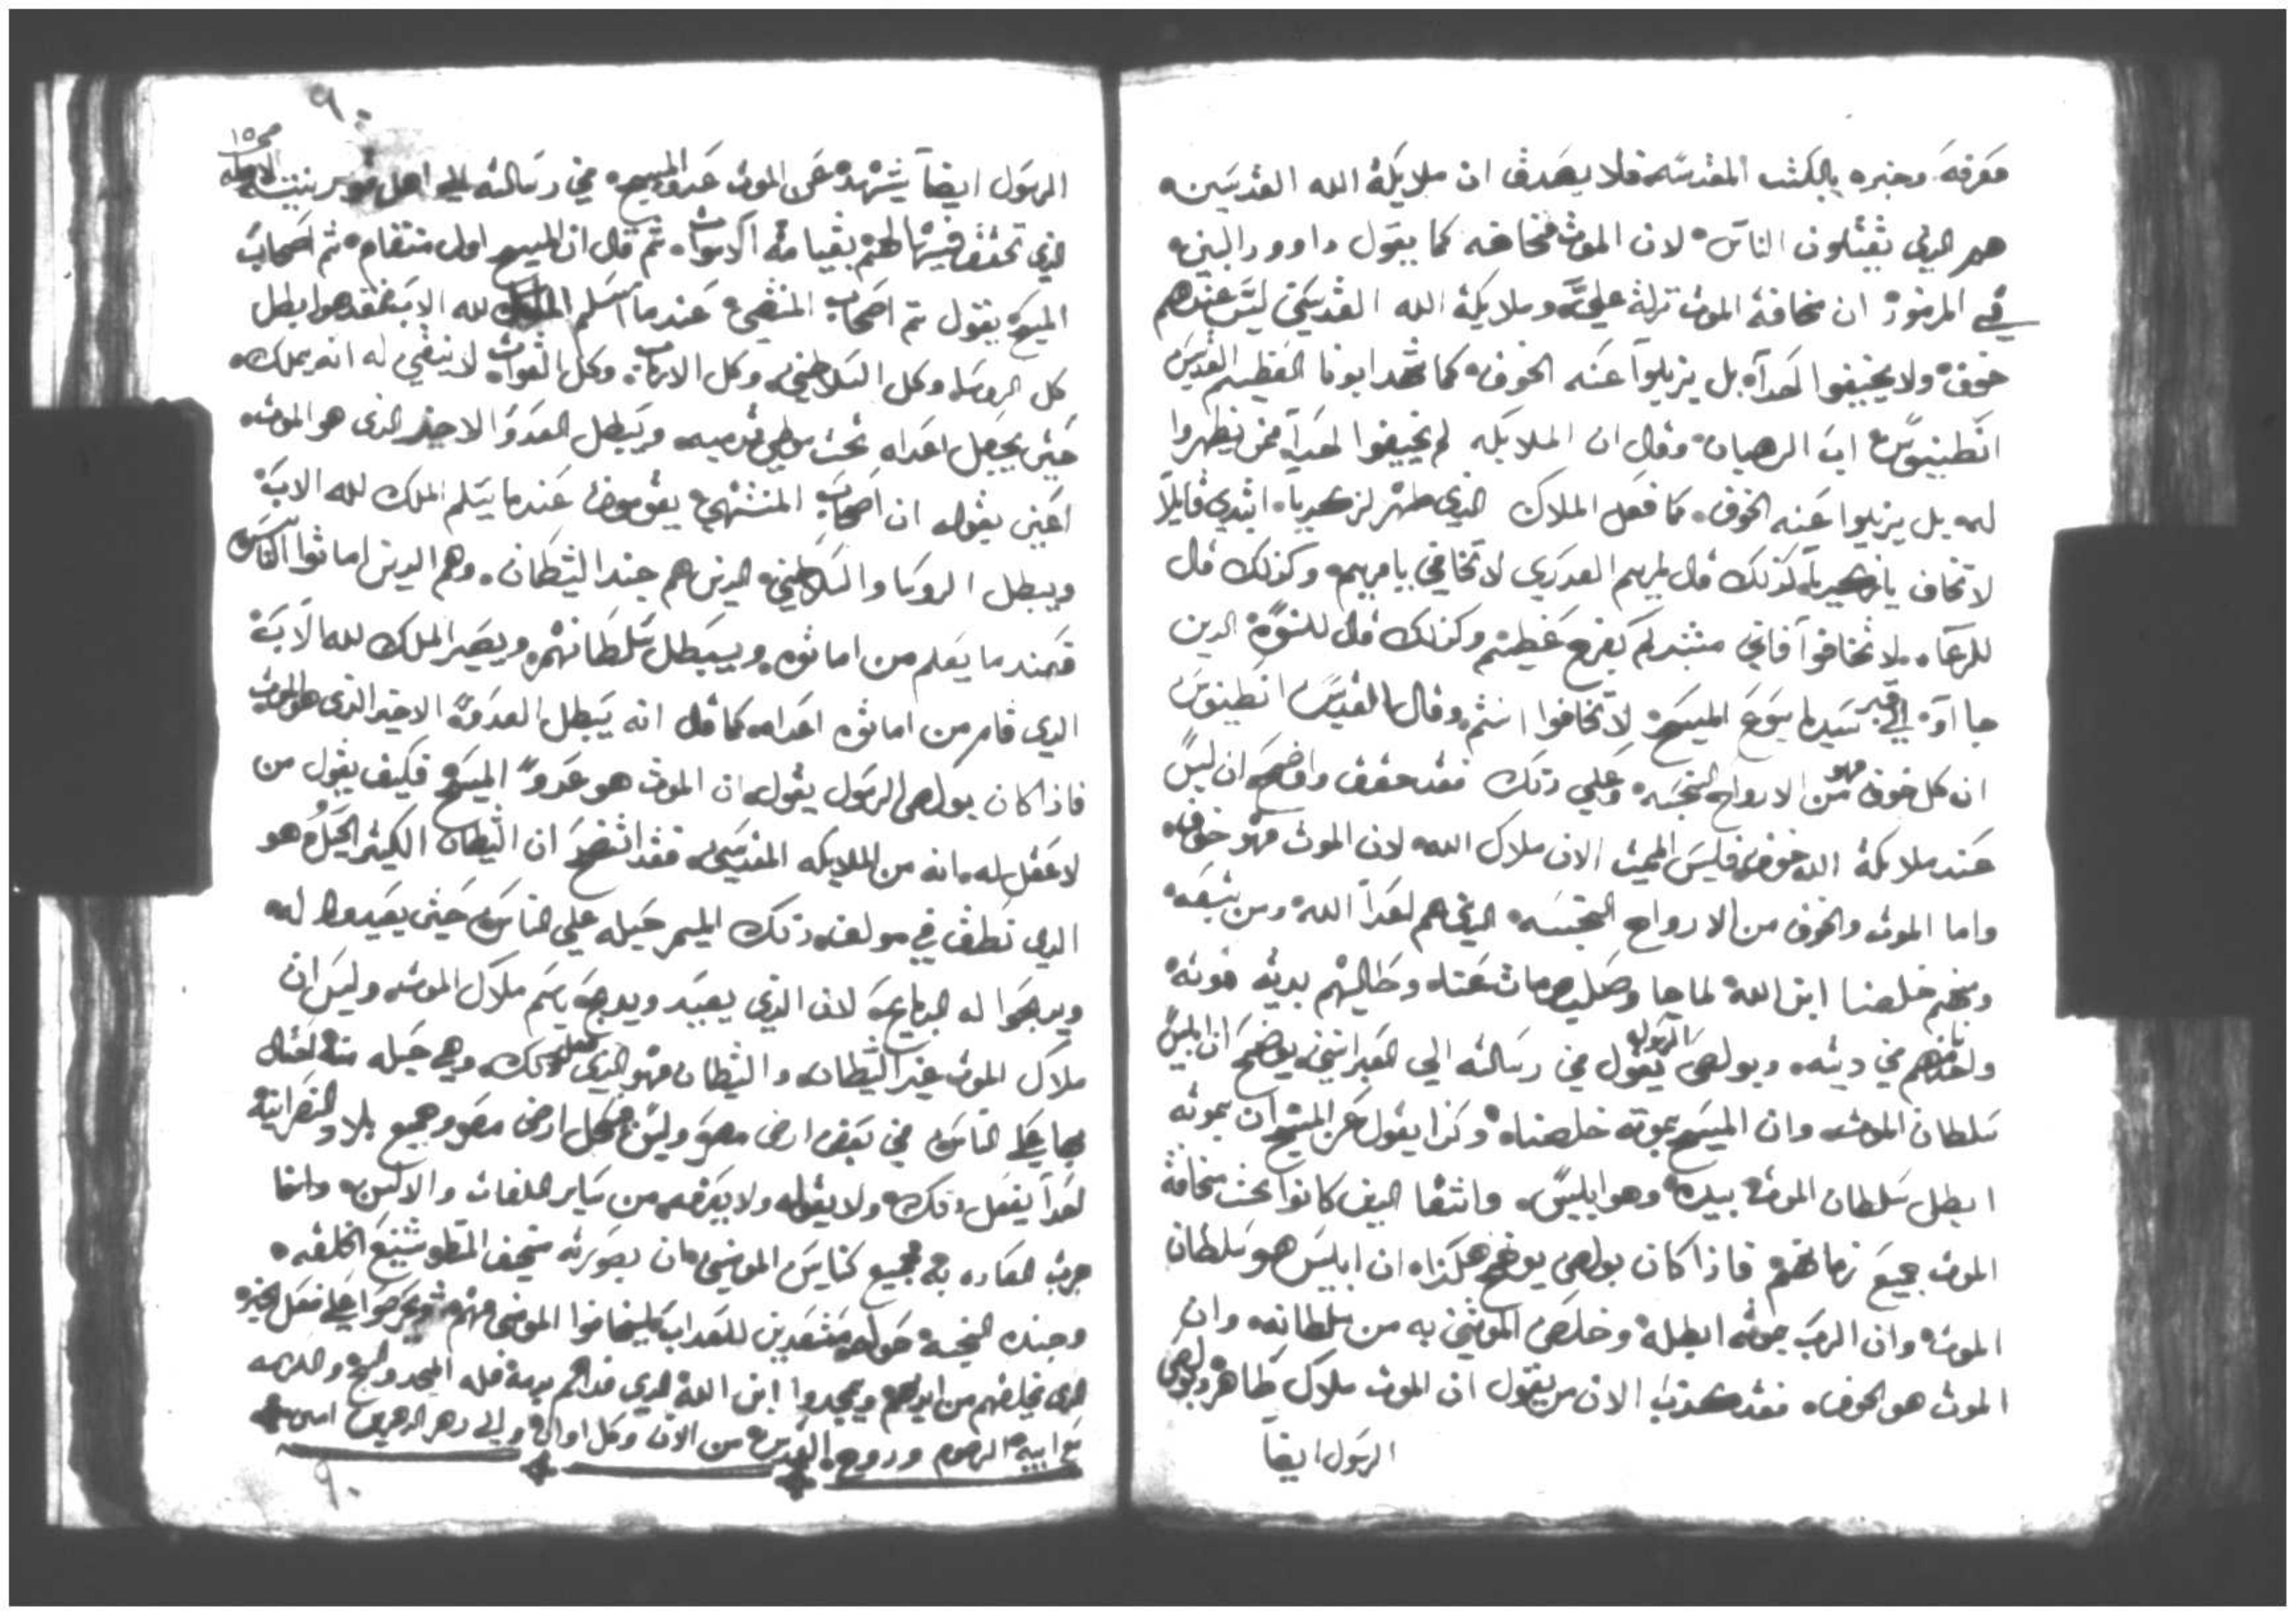 معرفة وخبره بالكتب المقدسه فلا يصدق ان ملايكة الله القديسين
هم الذي يقتلون الناس لان الموت مخافه كما يقول داوود النبي
في المزمور ان مخافة الموت نزلت علي وملايكة الله القديسين ليس عندهم
خوف ولا يخيفوا احدا بل يزيلوا عنه الخوف كما شهد ابونا العظيم القديس
انطنيوس اب الرهبان وقال ان الملايكه لم يخيفوا احدا ممن يظهروا
له بل يزيلوا عنه الخوف كما فعل الملاك الذي ظهر لزكريا ابتدي قايلا
لا تخاف يا زكريا كذلك قال لمريم العدري لا تخافي يا مريم وكذلك قال
للرعاه لا تخافوا فاني مبشركم بفرح عظيم وكذلك قال للنسوة الدين
جااوا الي قبر سيدنا يسوع المسيح لا تخافوا انتم وقال القديس انطنيوس
ان كل خوف فهو من الارواح النجسه وعلي ذلك فقد حقق واضح ان ليس
عند ملايكة الله خوف فليس الميت الان ملاك الله لان الموت فهو خوف
واما الموت والخوف من الارواح النجسه الذي هم اعدا الله ومن شيعه
ومنهم خلصنا ابن الله لما جا وصلب ومات عنا وطالبهم بدية موته
واخذهم في ديته وبولص الرسول يقول في رسالته الي العبرانيين يوضح ان ابليس
سلطان الموت وان المسيح بموته خلصنا وكذا يقول عن المسيح ان بموته
ابطل سلطان الموت بيده وهو ابليس وانتقا الذين كانوا تحت مخافة
الموت جميع زمانهم فاذا كان بولص يوضح هكذا ان ابليس هو سلطان
الموت وان الرب بموته ابطله وخلص المومنين به من سلطانه وان
الموت هو الخوف فقد كذب الان من يقول ان الموت ملاك طاهر وبولص
الرسول ايضا
٩٠
الرسول ايضا يشهد عن الموت عدو المسيح في رسالته الي اهل قورنتيه الاوله
صح ١٥
الذي تحقق فيها لهم بقيامة الاموات ثم قال ان المسيح اول متقام ثم اصحاب
المسيح يقول ثم اصحاب المنتهي عندما اسلم الملك لله الاب فعند هو ابطل
كل الروسا وكل السلاطين وكل الارباب وكل القوات لا ينبغي له انه يملك
حتى يجعل اعداه تحت موطي قدميه ويبطل العدو الاخير الذي هو الموت
اعني يقول ان اصحاب المنتهي يقومون عندما يسلم الملك لله الاب
ويبطل الروسا والسلاطين الذين هم جند الشيطان وهم الدين اماتوا الناس
فعندما يعلم من اماتوه ويبطل سلطانهم ويصير الملك لله الاب
الذي قام من اماتوه اعداه كما قال انه يبطل العدو الاخير الذي هو الموت
فاذا كان بولص الرسول يقول ان الموت هو عدو المسيح فكيف يقول من
لا عقل له انه من الملايكه القديسين فقد اتضح ان الشيطان الكثير الحيل هو
الذي نطق في مولف ذلك الميمر حيله علي الناس حتى يعيدوا له
ويدبحوا له الدبايح لان الذي يعيد ويدبح باسم ملاك الموت وليس ان
ملاك الموت غير الشيطان والشيطان فهو الذي ذلك وهي حيله منه احتال
بها علي الناس في بعض ارض مصر وليس في كل ارض مصر وجميع بلاد النصرانيه
احدا يفعل ذلك ولا يقوله ولا يعرفه من ساير اللغات والالسن وانما
جرت العاده في جميع كنايس المومنين ان يصوره شنيع الخلقه
وجنده النجسه حوله مستعدين للعداب ليخافوا المومنين منهم ويحرصوا علي فعل الخير
الذي يخلصهم من ايديهم ويمجدوا ابن الله الذي فداهم بدمه فله المجد والسبح والكرامه
مع ابيه الرحوم وروح القدس من الان وكل اوان والي دهر الدهرين امين
٩٠